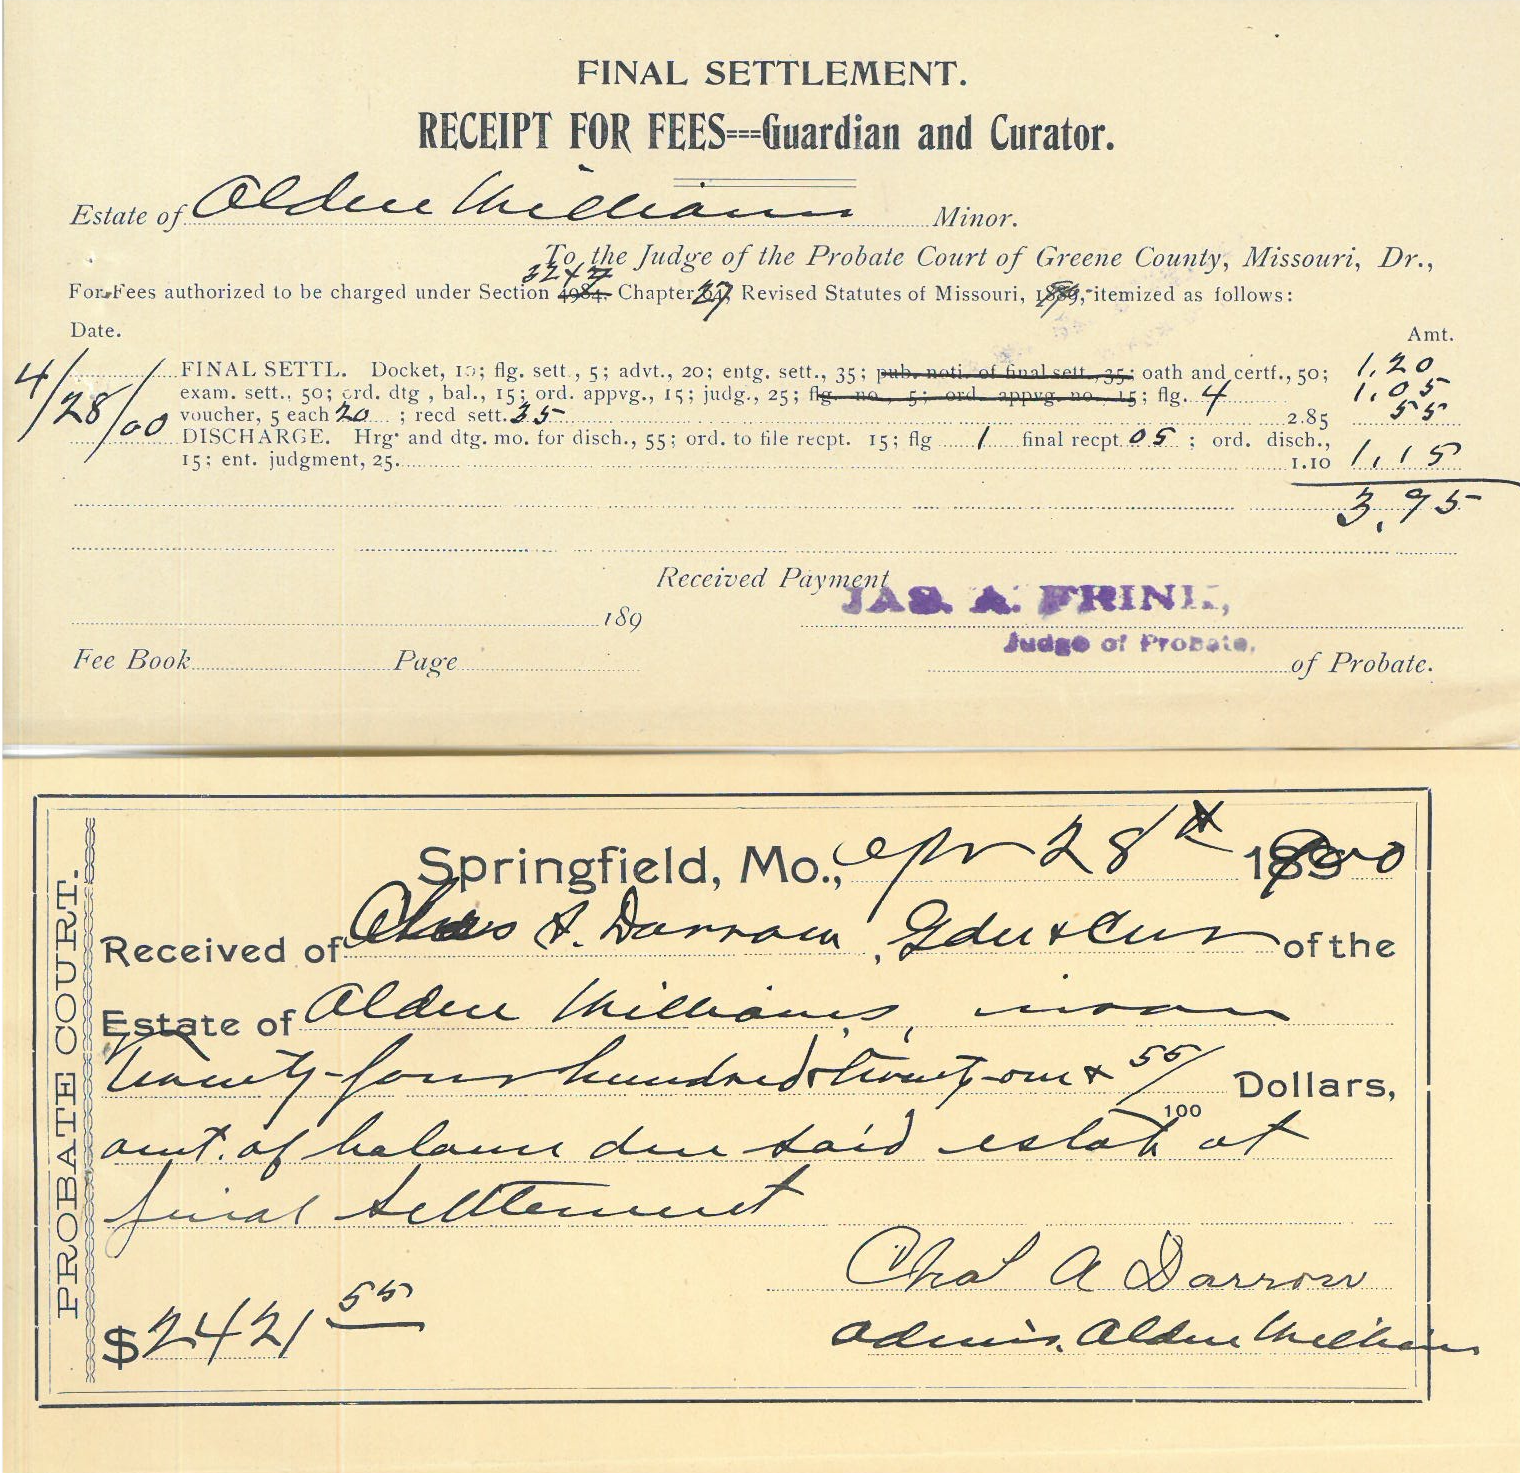 FINAL SETTLEMENT.
RECEIPT FOR FEES===Guardian and Curator.
Estate of Alden Williams Minor.
To the Judge of the Probate Court of Greene County, Missouri, Dr.,
3247
For Fees authorized to be charged under Section 4984, Chapter 27, Revised Statutes of Missouri, 1889, itemized as follows:
Date. Amt.
4/28/00 FINAL SETTL. Docket, 10; flg. sett., 5; advt., 20; entg. sett., 35; pub. noti. of final sett., 35; oath and certf., 50; 1.20
exam. sett., 50; ord. dtg, bal., 15; ord. appvg., 15; judg., 25; flg. no., 5; ord. appvg. no., 15; flg. 4 1.05
voucher, 5 each 20 ; recd sett. 35 2.85 55
DISCHARGE. Hrg. and dtg. mo. for disch., 55; ord. to file recpt. 15; flg 1 final recpt 05 ; ord. disch.,
15; ent. judgment, 25. 1.10 1.15
3.95
Received Payment
JAS. A. FRINK,
189
Judge of Probate.
Fee Book Page of Probate.
PROBATE COURT.
Springfield, Mo., Apr 28th 1900
Received of Chas A. Darrow, Gdn & Cur of the
Estate of Alden Williams,
Twenty-four hundred & twenty-one & 55/100 Dollars,
amt. of balance due said estate at
final settlement
Chas A Darrow
$2421 55
admin. Alden Williams